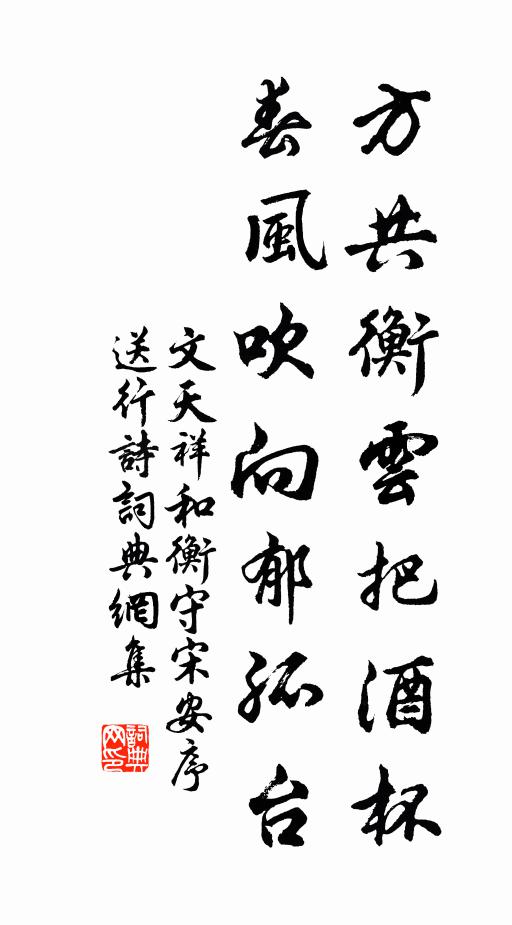 方共衡雲把酒杯
春風吹向郁孤台
文天祥和衡守宋安序
送行詩詞典網集
詞典网印